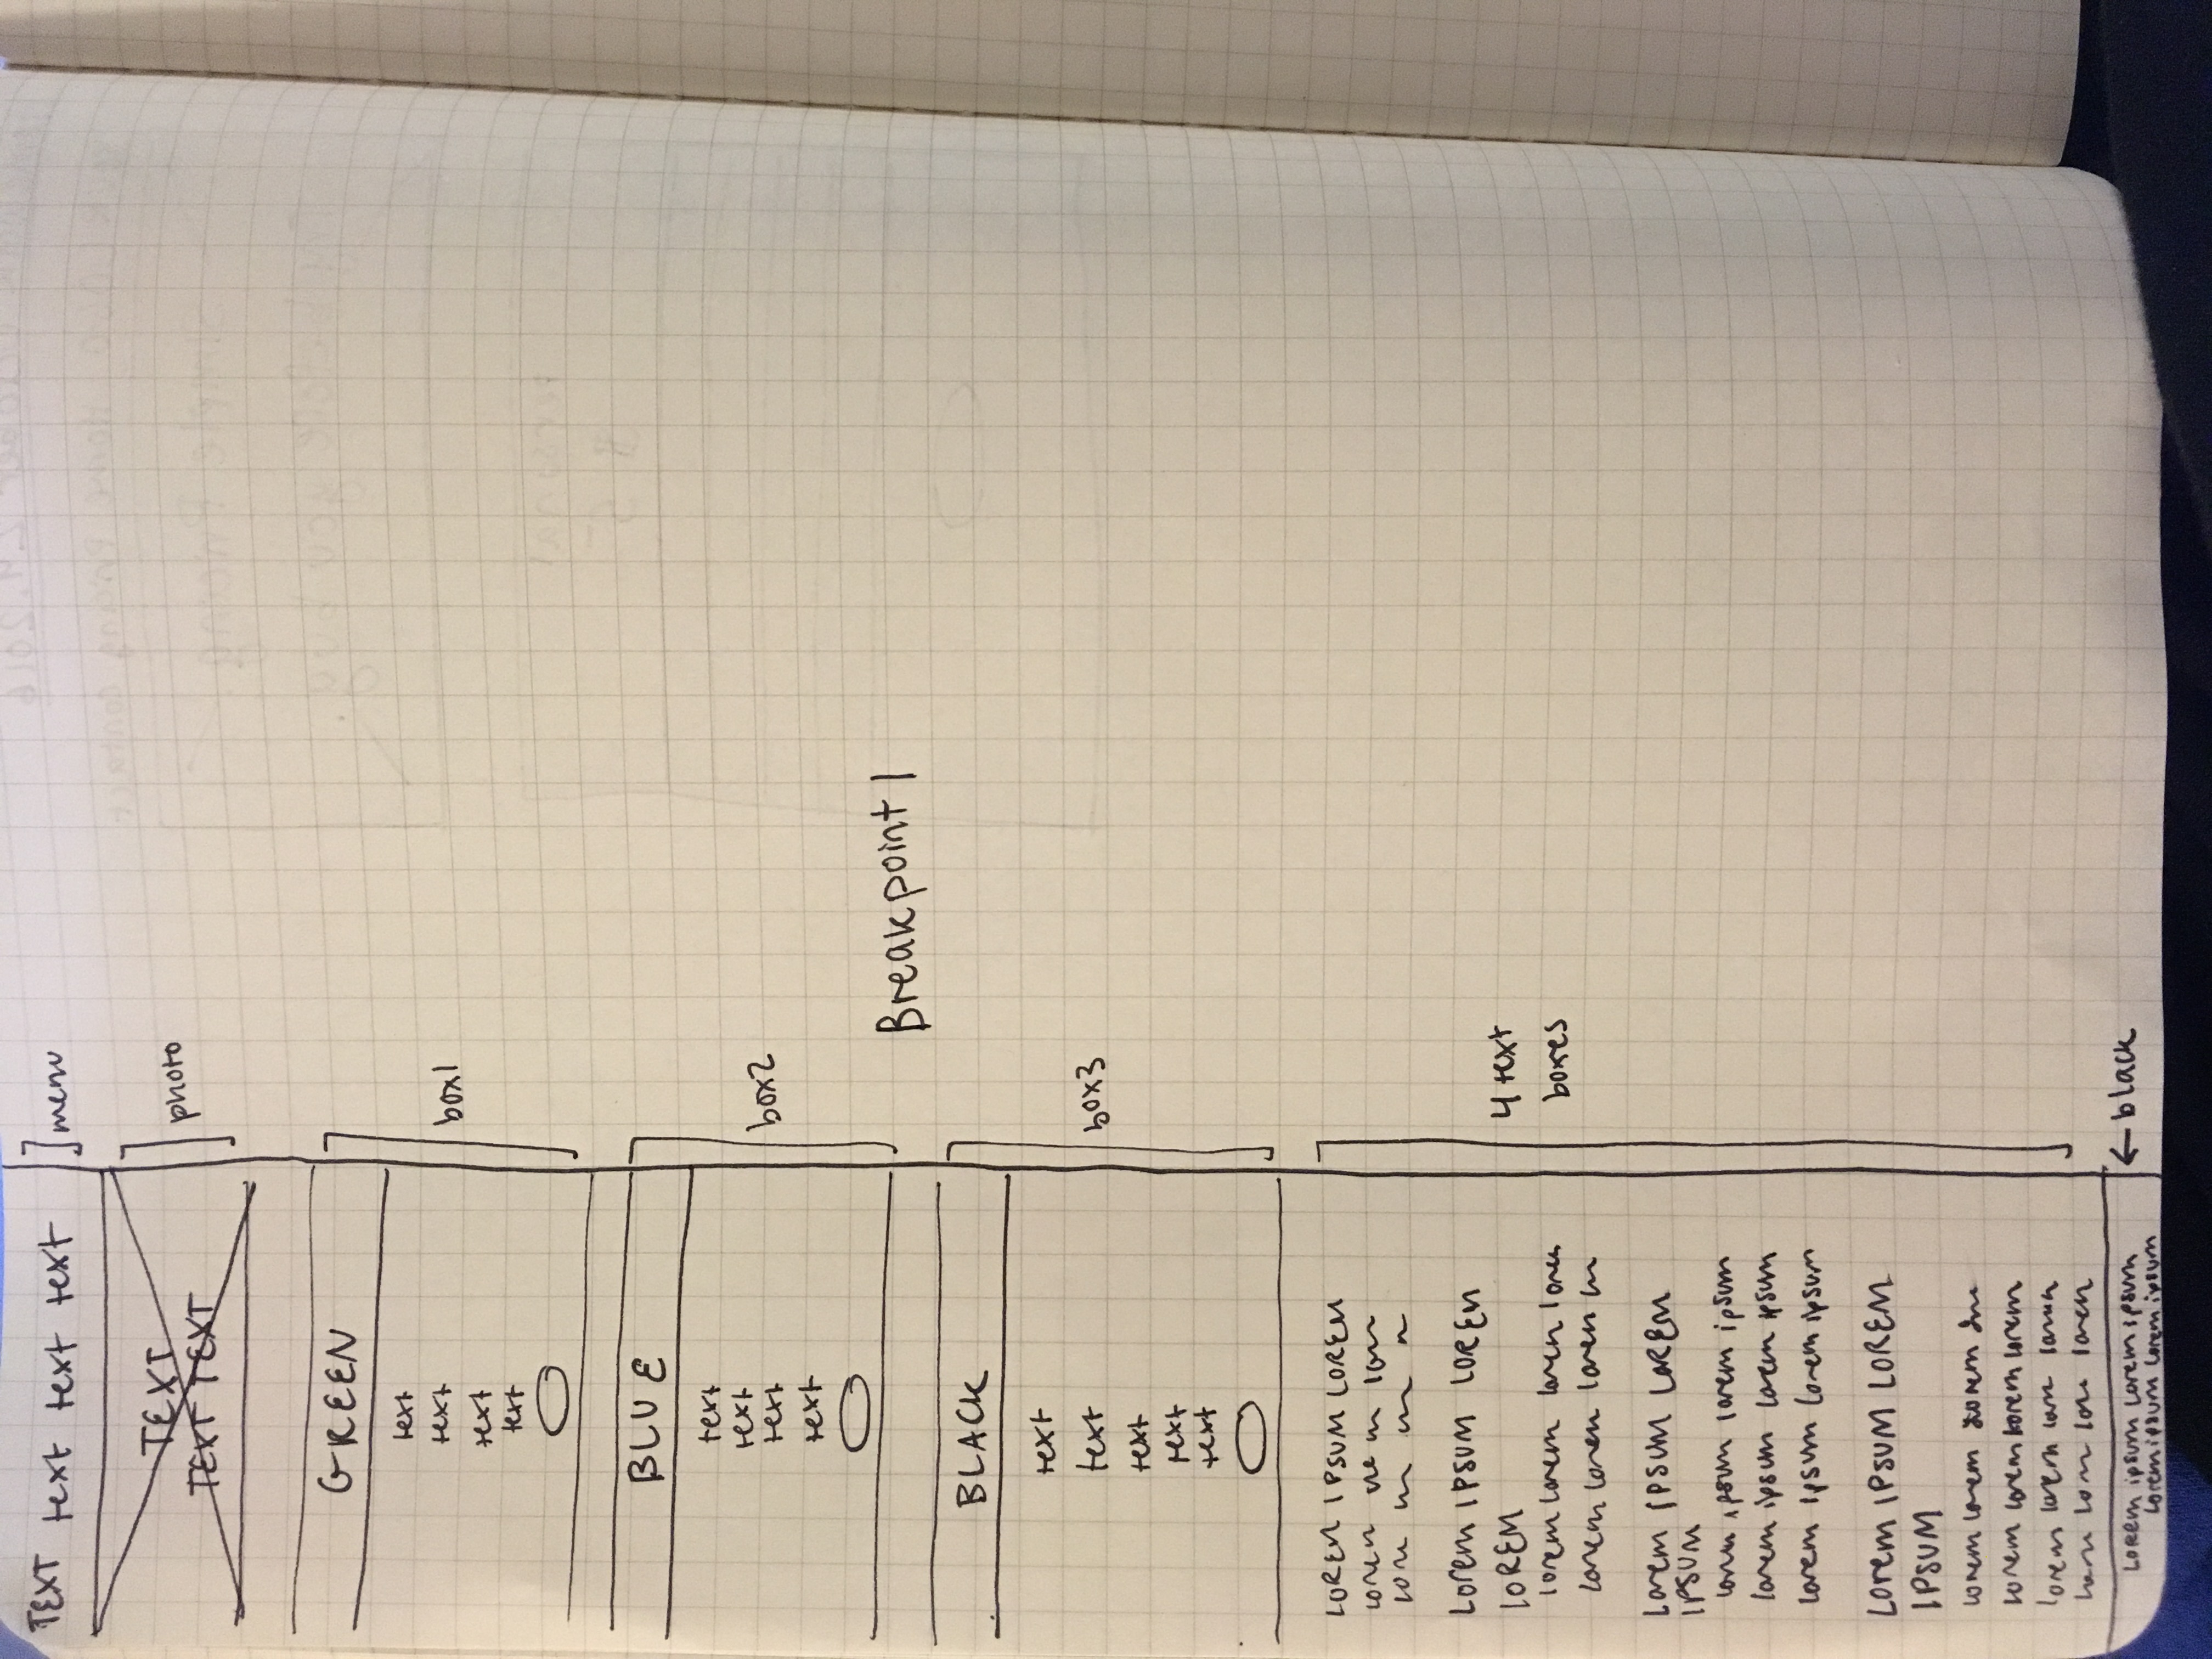 TEXT text text text
menu
TEXT
TEXT TEXT
photo
GREEN
text
text
text
text
box1
BLUE
text
text
text
text
box2
Breakpoint 1
BLACK
text
text
text
text
text
box3
LOREM IPSUM LOREM
lorem
Lorem IPSUM LOREM
LOREM
lorem lorem lorem lorem
lorem lorem lorem
4 text
boxes
Lorem IPSUM LOREM
IPSUM
lorem ipsum lorem ipsum
lorem ipsum lorem ipsum
lorem ipsum lorem ipsum
Lorem IPSUM LOREM
IPSUM
lorem lorem lorem
lorem lorem lorem lorem
lorem lorem
lorem
Lorem ipsum Lorem ipsum
Lorem ipsum Lorem ipsum
black